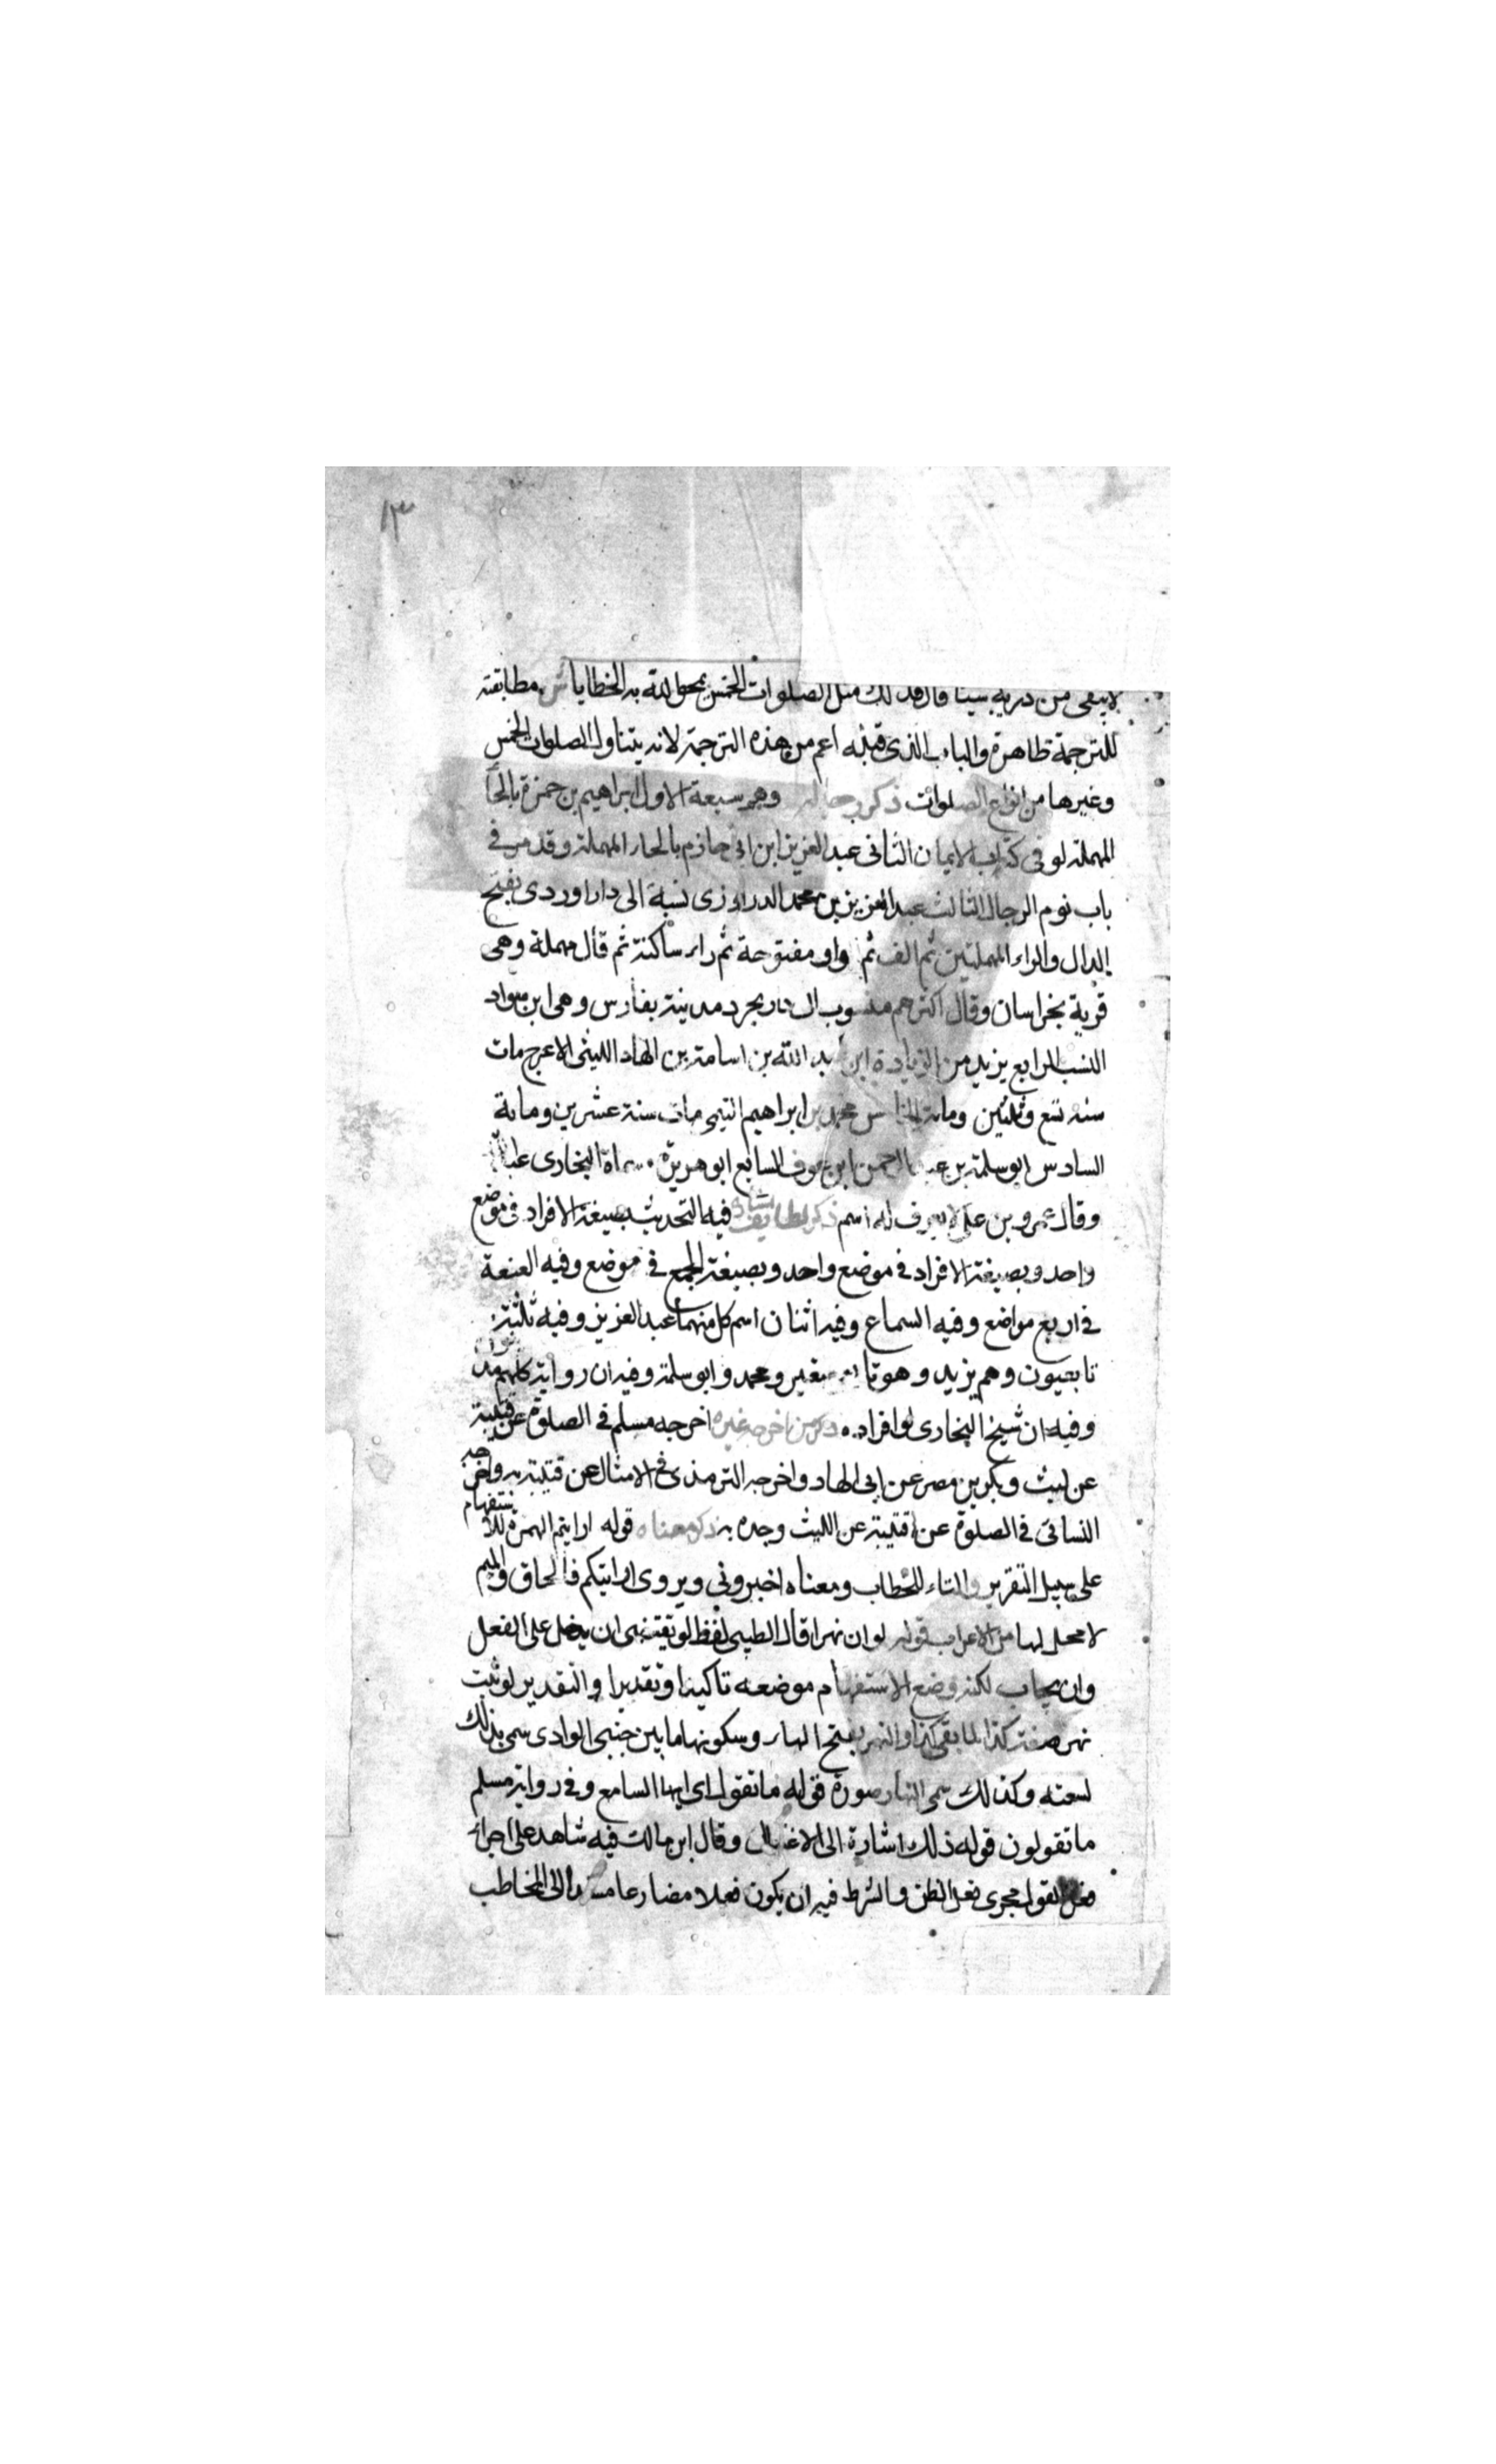 ١٣
لا يبقى من درنه شيئا قال فذلك مثل الصلوات الخمس يمحو الله به الخطايا ش مطابقته
للترجمة ظاهرة والباب الذى قبله اعم من هذه الترجمة لانه يتناول الصلوات الخمس
وغيرها من انواع الصلوات ذكر رجاله وهم سبعة الاول ابراهيم بن حمزة بالحاء
المهملة لو فى كتاب الايمان الثانى عبد العزيز ابن ابى حازم بالحاء المهملة وقد مر فى
باب نوم الرجال الثالث عبد العزيز بن محمد الدراوزى نسبة الى داراوردى بفتح
الدال والراء المهملتين ثم الف ثم واو مفتوحة ثم راء ساكنة ثم قال مهملة وهى
قرية بخراسان وقال اكثرهم منسوب الى داربجرد مدينة بفارس وهى ابن سواد
النسب الرابع يزيد من الزيادة ابن عبد الله بن اسامة بن الهاد الليثى الاعرج مات
سنة تسع وثلثين ومائة الخامس محمد بن ابراهيم التيمى مات سنة عشرين ومائة
السادس ابو سلمة بن عبد الرحمن ابن عوف السابع ابو هريرة سماه البخارى عبد الله
وقال عمرو بن على لا يعرف له اسم ذكر لطايف اسناده فيه التحديث بصيغة الافراد فى موضع
واحد وبصيغة الافراد فى موضع واحد وبصيغة الجمع فى موضع وفيه العنعنة
فى اربع مواضع وفيه السماع وفيه اثنان اسم كل منهما عبد العزيز وفيه ثلثة
تابعيون وهم يزيد وهو تابعى صغير ومحمد وابو سلمة وفيه ان رواية كلهم مدنيون
وفيه ان شيخ البخارى لو افراده ذكر من اخرجه غيره اخرجه مسلم فى الصلوة عن قتيبة
عن ليث وبكر بن مصر عن ابى الهاد واخرجه الترمذى فى الامثال عن قتيبة به واخرجه
النسائى فى الصلوة عن قتيبة عن الليث وحده به ذكر معناه قوله ارايتم الهمزة للاستفهام
على سبيل التقرير والتاء للخطاب ومعناه اخبرونى ويروى ارايتكم فالحاق والميم
لا محل لها من الاعراب قوله لو ان نهرا قال الطيبى لفظ لو يقتضى ان يدخل على الفعل
وان يجاب لكنه وضع الاستفهام موضعه تاكيدا وتقديرا والتقدير لو ثبت
نهر صفته كذا لما بقى كذا والنهر بفتح الهاء وسكونها ما بين جنبى الوادى سمى بذلك
لسعته وكذلك سمى النهار صورة قوله ما تقول اى ايها السامع وفى رواية مسلم
ما تقولون قوله ذلك اشارة الى الاغتسال وقال ابن مالك فيه شاهد على اجراء
فعل القول مجرى فعل الظن والشرط فيه ان يكون فعلا مضارعا مسندا الى المخاطب